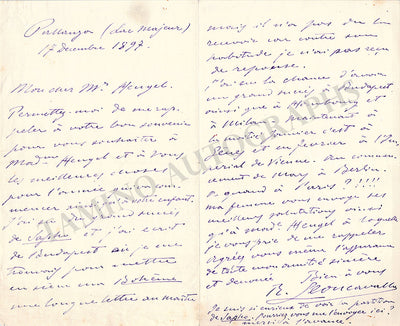 Pallanza (Lac majeur)
17 Decembre 1897
Mon cher Mr Heugel.
Permettez-moi de me rap-
peler à votre bon souvenir
pour vous souhaiter à
Madme Heugel et à vous
les meilleures choses
pour l'année
J'ai su du grand succès
de Sapho et j'ai écrit
de Budapest où je me
trouvais pour mettre
en scène ma Bohême
une longue lettre au maître
mais il n'a pas du la
recevoir car contre son
habitude je n'ai pas reçu
de reponse.
J'ai eu la chance d'avoir
un grand succès à Budapest
ainsi que à Hambourg et
à Milan maintenant à
Janvier c'est à
et en fevrier à l'Im-
perial de Vienne. Au commen-
cement de Mars à Berlin.
Et quand à Paris?!!!!
Ma femme vous envoye ses
meilleures salutations ainsi
qu'à Madme Heugel à laquelle
je vous prie de me rappeler
agréez vous même l'assurance
de toute mon amitié sincère
et devouée
Bien à vous
R. Leoncavallo
Je suis si curieux de voir la partition
de Sapho. Pouvez vous me l'envoyer ici?
merci à l'avance.
TAMINO AUTOGRAPHS